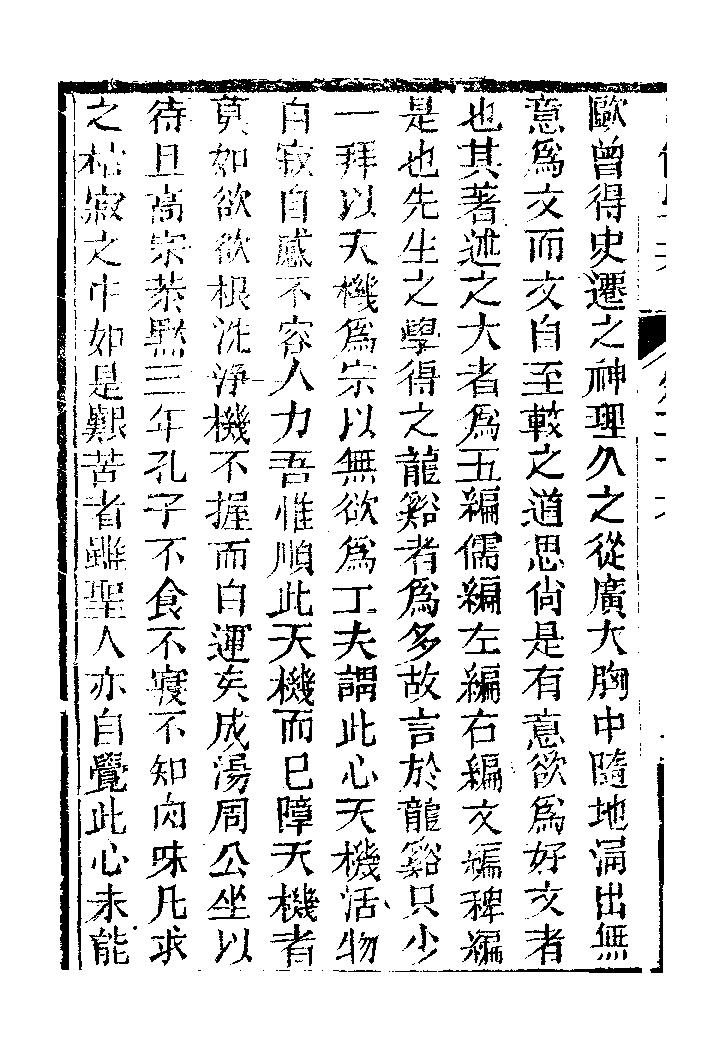 歐曾得史遷之神理久之從廣大胸中隨地涌出無
意爲文而文自至較之道思尙是有意欲爲好文者
也其著述之大者爲五編儒編左編右編文編稗編
是也先生之學得之龍谿者爲多故言於龍谿只少
一拜以天機爲宗以無欲爲工夫謂此心天機活物
自寂自感不容人力吾惟順此天機而已障天機者
莫如欲欲根洗淨機不握而自運矣成湯周公坐以
待旦高宗恭默三年孔子不食不寢不知肉味凡求
之枯寂之中如是艱苦者雖聖人亦自覺此心未能